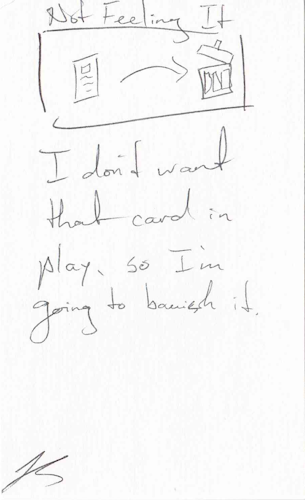 Not Feeling It
I don't want
that card in
play, so I'm
going to banish it.